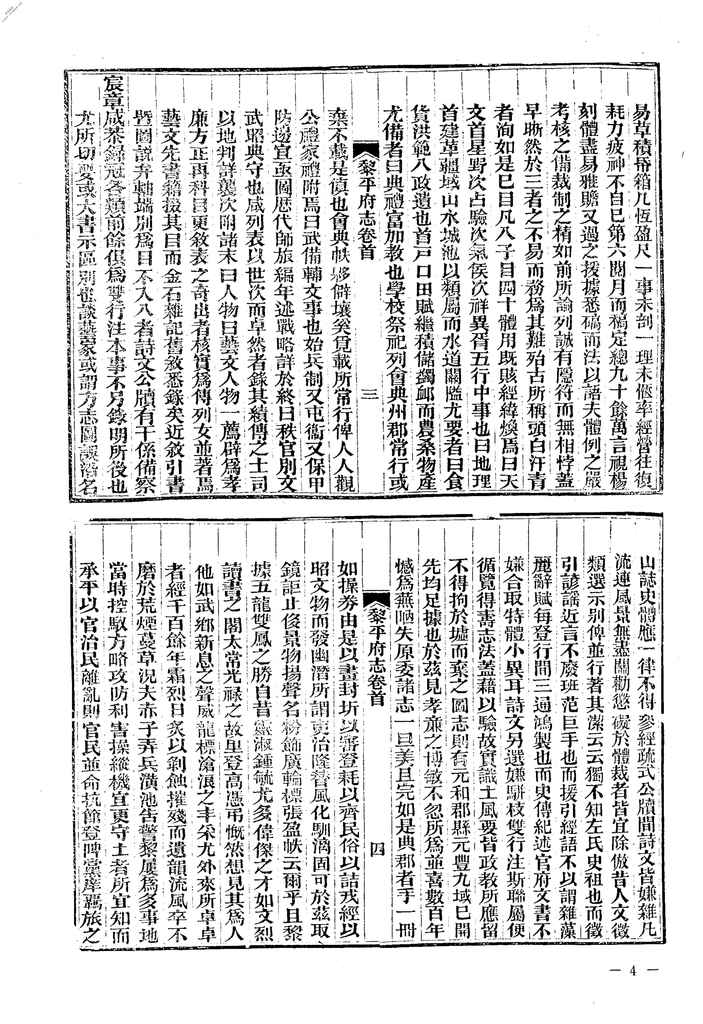 易草積牘箱几恆盈尺一事未剖一理未愜率經營往復
耗力疲神不自已第六閱月而槁定總九十餘萬言視楊
刻體盡易雅贍又過之援據悉碻而法以語夫體例之嚴
考核之備裁制之精如前所論列誠有隱符而無相悖蓋
早晣然於三者之不易而務為其難殆古所稱頭白汗青
者洵如是巳目凡八子目四十體用既賅經緯煥焉曰天
文首星野次占驗次氣侯次祥異胥五行中事也曰地理
首建革疆域山水城池以類屬而水道關隘尤要者曰食
貨洪範八政遺也首戸口田賦繼積儲蠲卹而農桑物產
尤備者曰典禮富加教也學校祭祀列會典州郡常行或
黎平府志卷首
三
棄不載是傎也會典帙夥僻壤奚覓載所常行俾人人觀
公禮家禮附焉曰武備輔文事也始兵制又屯衞又保甲
防邊宜亟圖歴代師旅編年述戰略詳於終曰秩官别文
武昭典守也咸列表以世次而卓然者錄其績傳之土司
以地判詳襲次附諸末曰人物曰藝文人物一薦辟為孝
廉方正再科目更敘表之奇出者核實為傳列女並著焉
藝文先書籍掇其目而金石雜記舊敘悉錄矣近敘引書
暨圖說弁輔端别為目不入八者詩文公牘有干係備察
宸章咸恭錄冠各類前餘俱為雙行注本事不另錄明所後也
尤所切要或大書示區别也談藝家或謂方志圖諜沿名
山誌史體應一律不得參經疏式公牘間詩文皆嫌雜凡
流連風景無盡關勸懲礙於體裁者皆宜除倣昔人文徵
類選示别俾並行著其潔云云獨不知左氏史祖也而徵
引諺謡近言不廢班范巨手也而援引經語不以謂雜藻
麗辭賦每登行間三通鴻製也而史傳紀述官府文書不
嫌合取特體小異耳詩文另選嫌駢枝雙行注斯聯屬便
循覽得著志法蓋藉以驗故實識土風要皆政教所應留
不得拘於墟而棄之圖志則有元和郡縣元豐九域巳開
先均足據也於茲見孝廉之博敏不忽所為並喜數百年
憾為蕪陋失原委諸志一旦美且完如是典郡者手一冊
黎平府志卷首
四
如操券由是以畫封圻以審登耗以齊民俗以詰戎經以
昭文物而發幽潛所謂吏治隆替風化馴漓固可於茲取
鏡詎止侈景物揚聲名粉飾廣輪標張盈帙云爾乎且黎
據五龍雙鳳之勝自昔靈淑鍾毓尤多偉傑之才如文烈
讀書之閣太常光祿之故里登高憑弔慨然想見其為人
他如武鄉新息之聲威龍標滄浪之丰采尤外來所卓卓
者經千百餘年霜烈日炙以剝蝕摧殘而遺韻流風卒不
磨於荒煙蔓草況夫赤子弄兵潢池告警黎屢為多事地
當時控馭方略攻防利害操縱機宜更守土者所宜知而
承平以官治民離亂則官民並命抗節登陴黨庠羈旅之
— 4 —